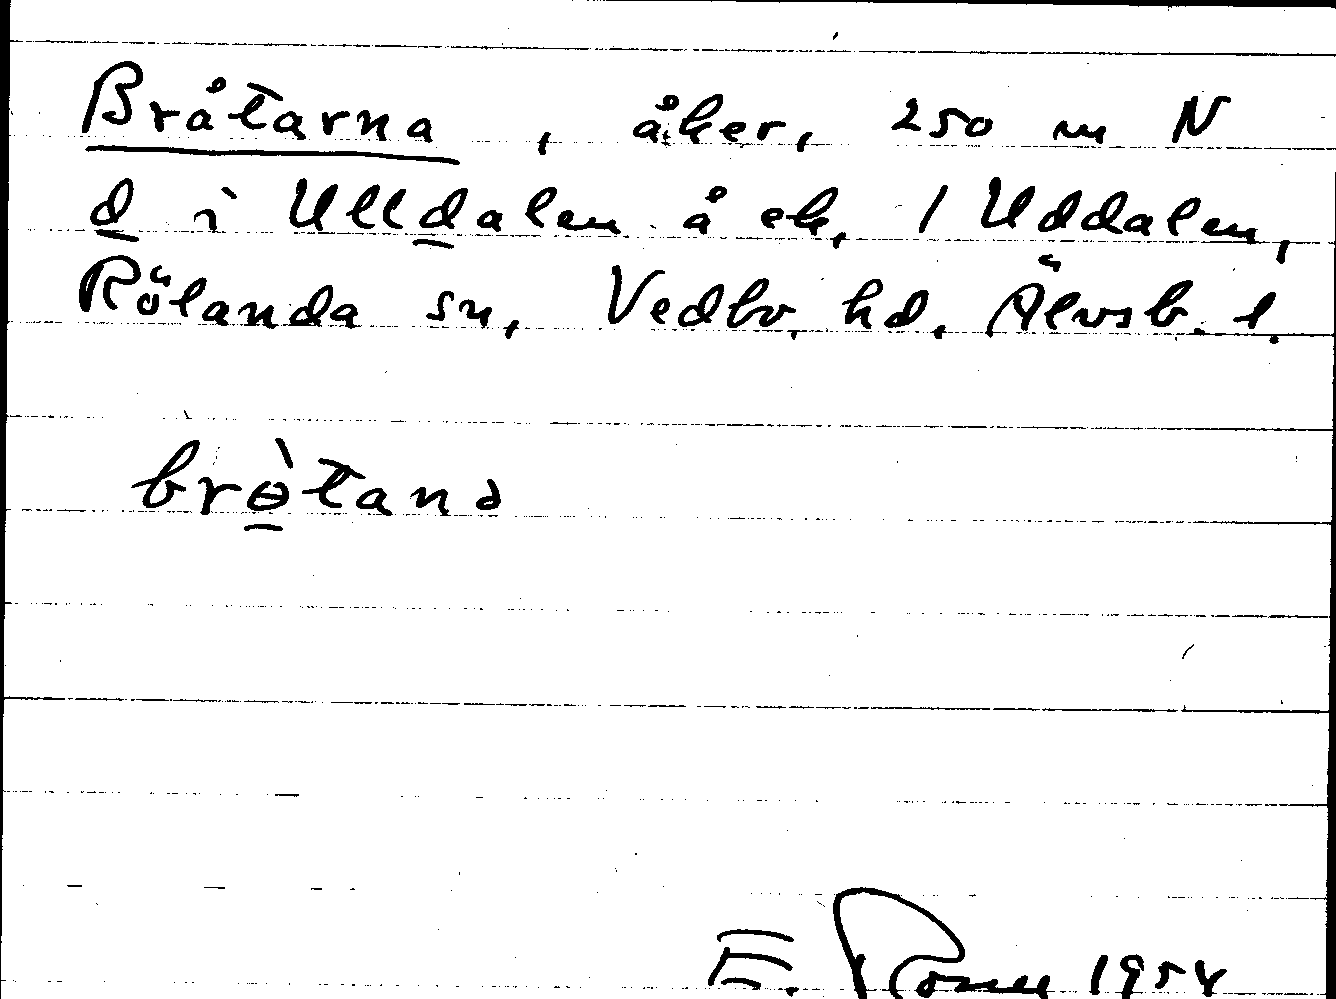 Bråtarna, åker, 250 m N
d i Ulldalen å ek. 1 Uddalen,
Rölanda sn, Vedbo hd, Älvsb. l.
brɵ̀tanə
E. 1954